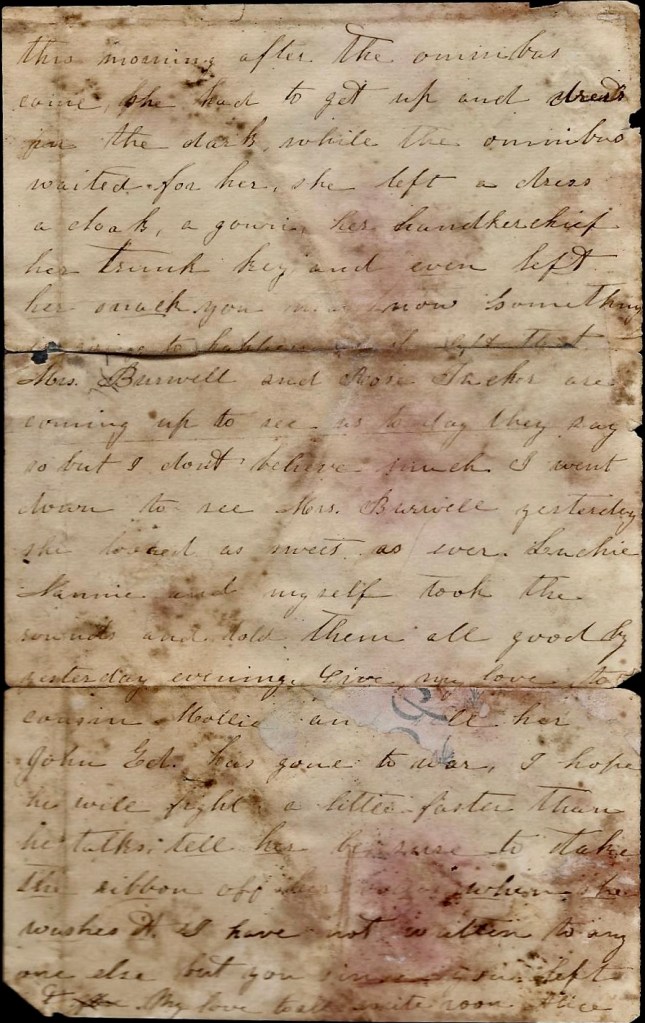 this morning after the omnibus
came, she had to get up and dress
in the dark, while the omnibus
waited for her, she left a dress
a cloak, a gown, her handkerchief
her trunk key and even left
her snack you may now something
to happen left that
Mrs. Burwell and Rose Tacker are
coming up to see us to day they say
so but I dont believe much I went
down to see Mrs. Burwell yesterday
she looked as sweet as ever. Luchie
Nannie and myself took the
rounds and told them all good by
yesterday evening. Give my love to
cousin Mollie an ll her
John Ed. has gone to war, I hope
he will fight a little faster than
he talks, tell her be sure to take
the ribbon off her when she
washes it. I have not written to any
one else but you since left
My love to all write soon Alice